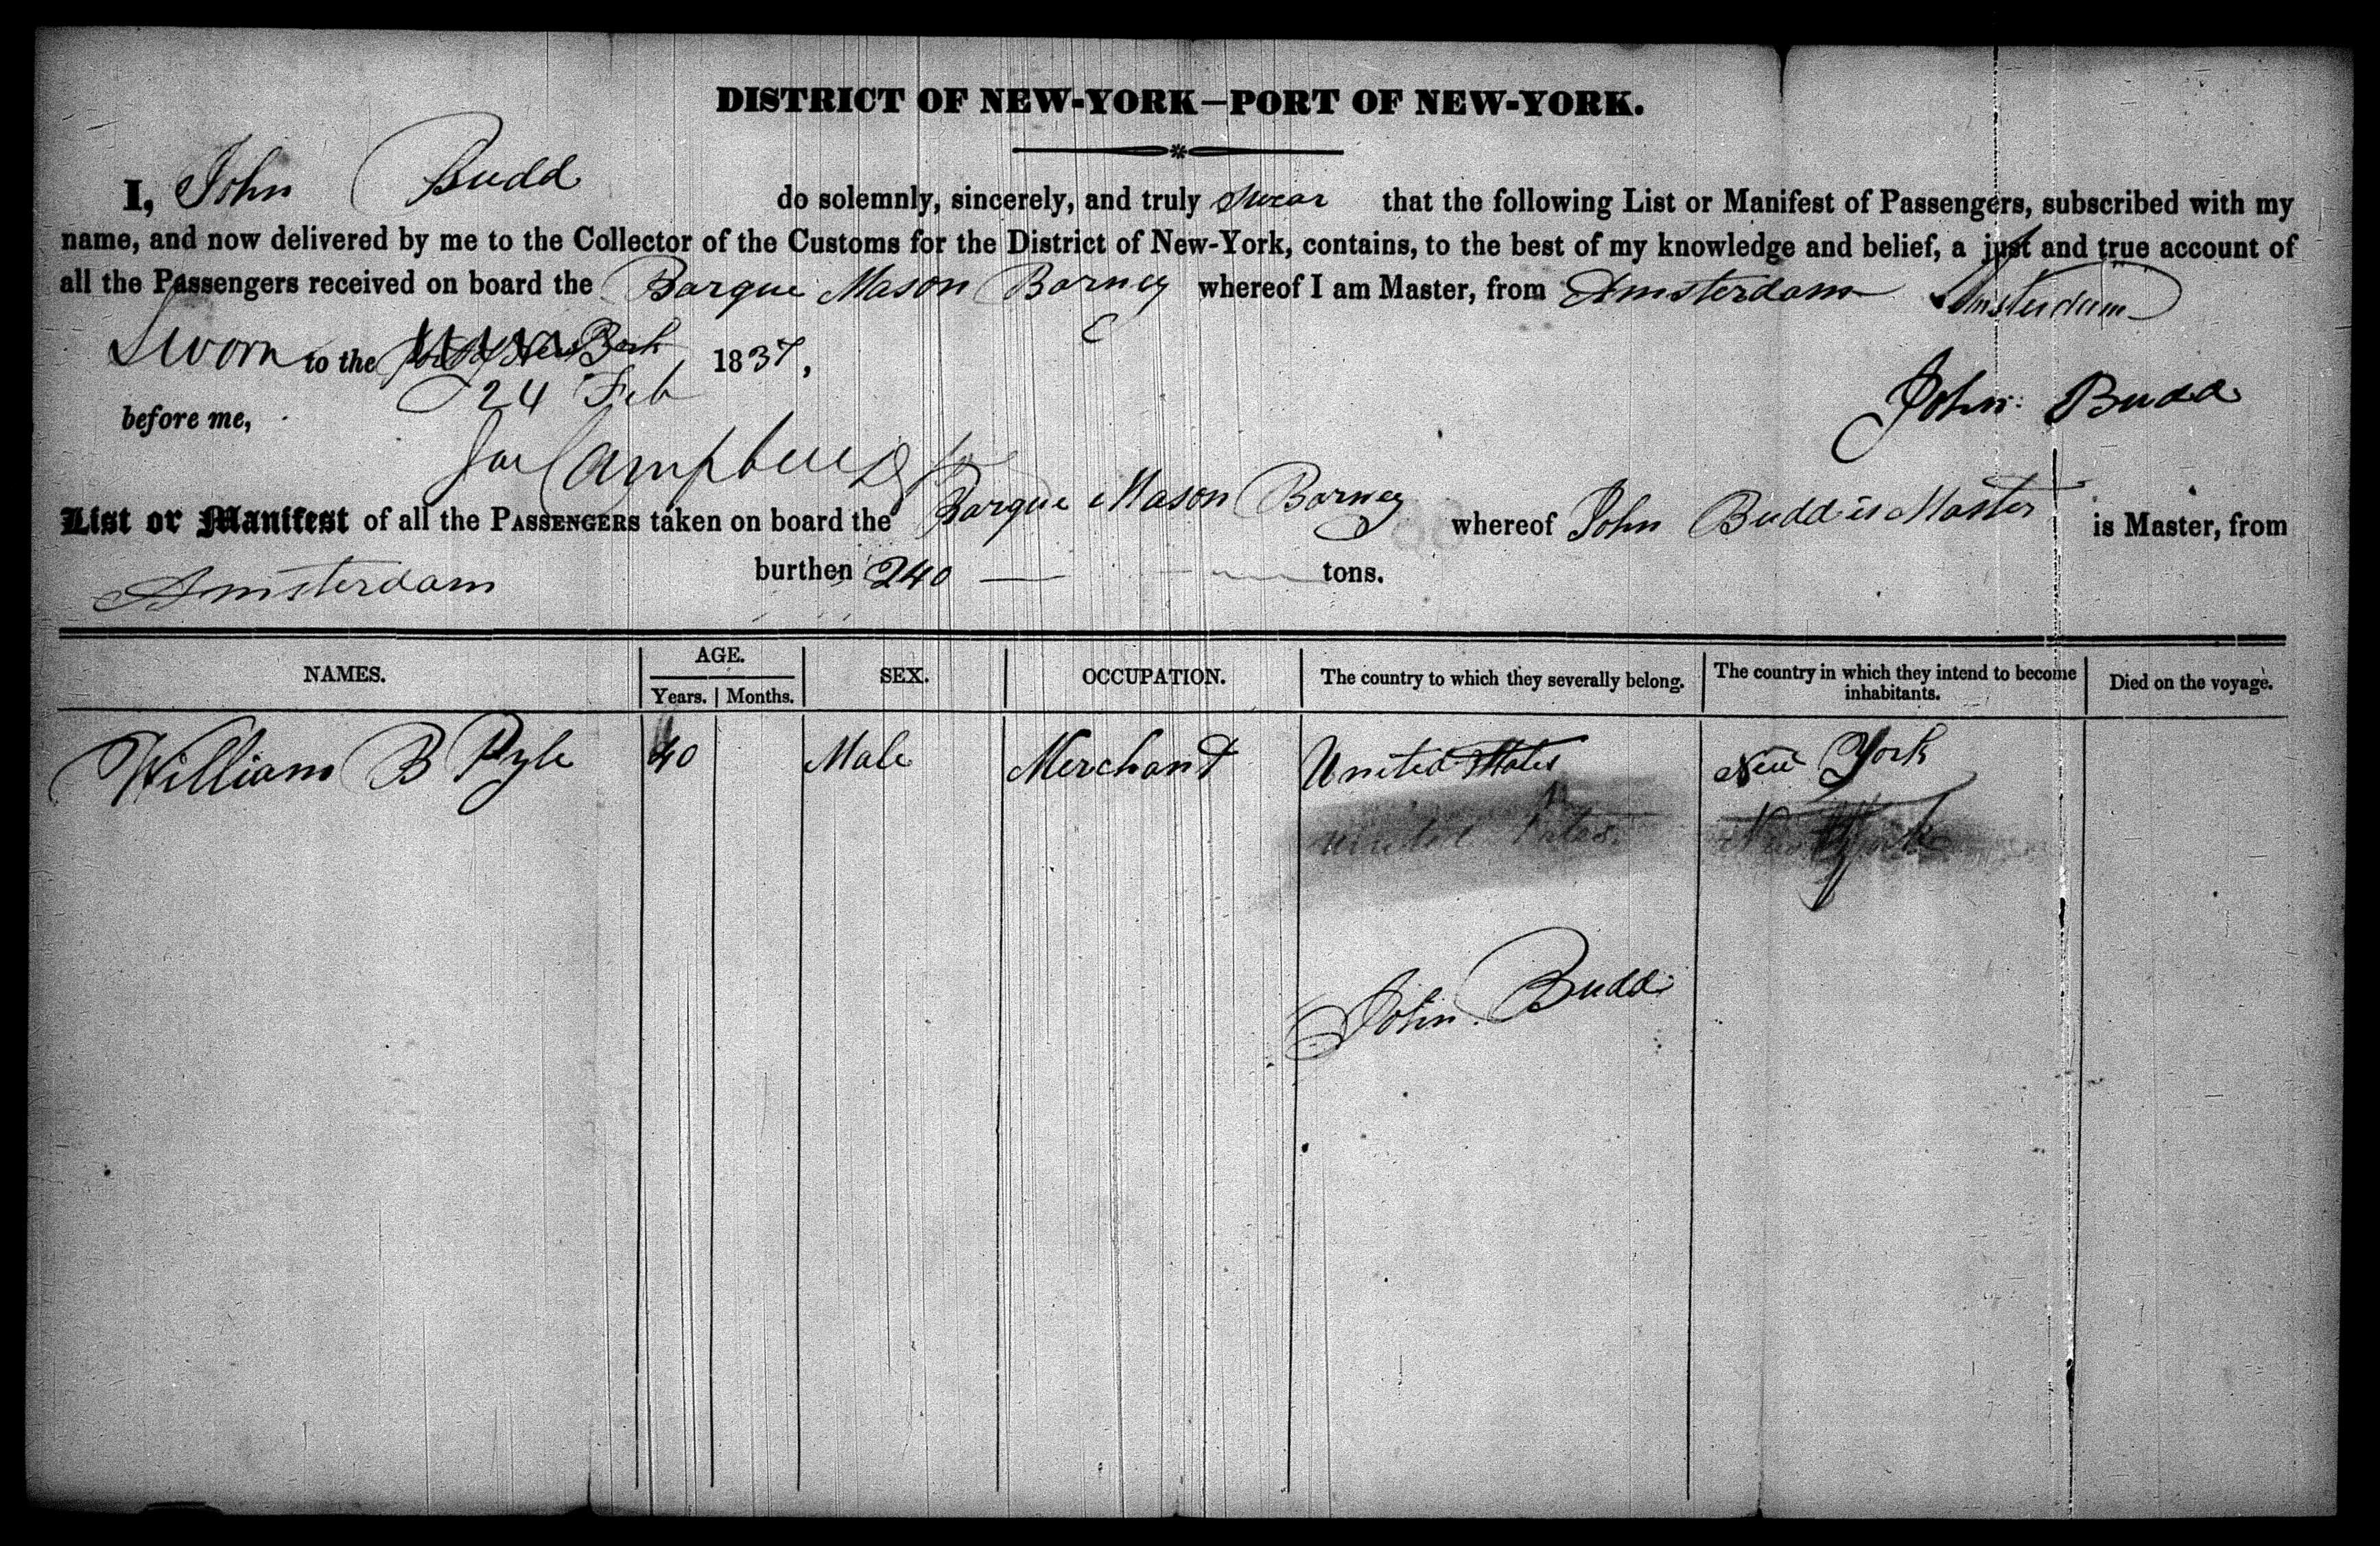 DISTRICT OF NEW-YORK—PORT OF NEW-YORK.
I, John Budd do solemnly, sincerely, and truly swear that the following List or Manifest of Passengers, subscribed with my
name, and now delivered by me to the Collector of the Customs for the District of New-York, contains, to the best of my knowledge and belief, a just and true account of
all the Passengers received on board the Barque Mason Barney whereof I am Master, from Amsterdam Amsterdam
Sworn to the 1837,
24 Feb
before me, John Budd
Campbell
List or Manifest of all the PASSENGERS taken on board the Barque Mason Barney whereof John Budd is Master is Master, from
Amsterdam burthen 240 tons.
NAMES. AGE. SEX. OCCUPATION. The country to which they severally belong. The country in which they intend to become inhabitants. Died on the voyage.
Years. Months.
William B Pyle 40 Male Merchant United States New York
United States. New York
John Budd